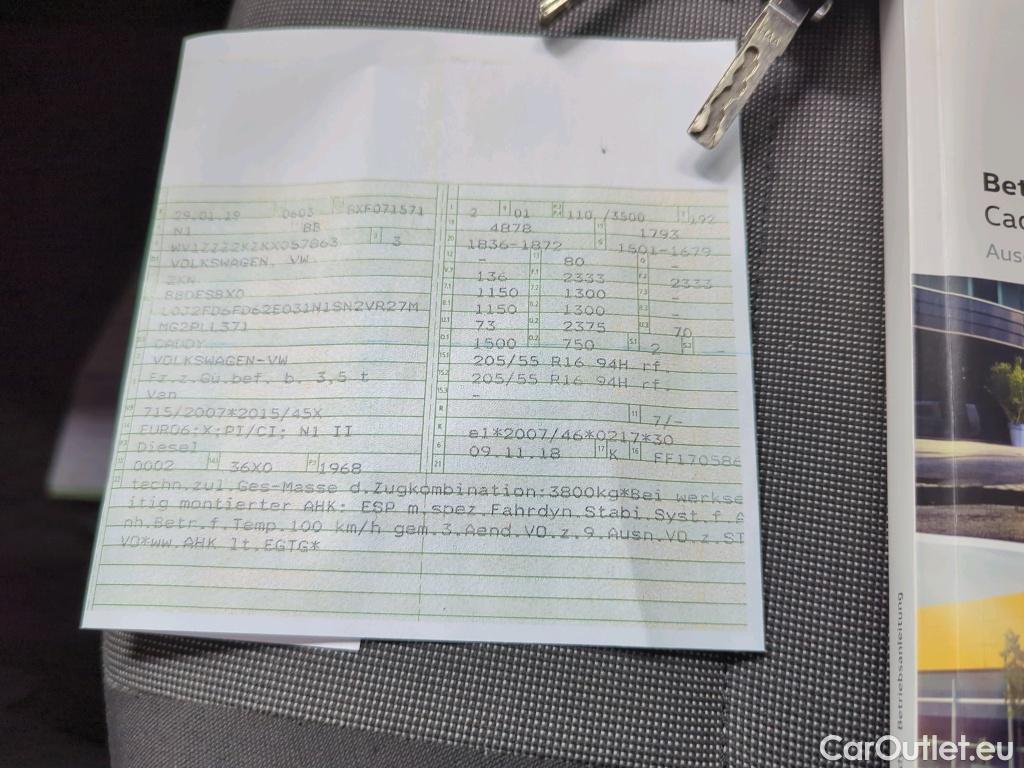 29.01.19 0603 BXF071571
N1 BB
3
VOLKSWAGEN, VW
2KN
BBDFSBX0
MG2PLL371
CADDY
VOLKSWAGEN-VW
Fz.z.Gü.bef. b. 3,5 t
Van
715/2007*2015/45X
EURO6;X;PI/CI; N1 II
Diesel
0002 36X0 1968
2 01 110 /3500 192
4878 1793
1836-1872 1501-1679
- 80 -
136 2333 2333
1150 1300 -
1150 1300 -
73 2375 70
1500 750 2
205/55 R16 94H rf.
205/55 R16 94H rf.
-
7/-
e1*2007/46*0217*30
09.11.18 K FF170586
techn.zul.Ges-Masse d.Zugkombination:3800kg*Bei werkse
itig montierter AHK: ESP m.spez.Fahrdyn.Stabi.Syst.f.A
nh.Betr.f.Temp.100 km/h gem.3.Aend.VO.z.9.Ausn.VO.z.ST
VO*ww.AHK lt.EGTG*
Bet
Cad
Aus
Betriebsanleitung
CarOutlet.eu